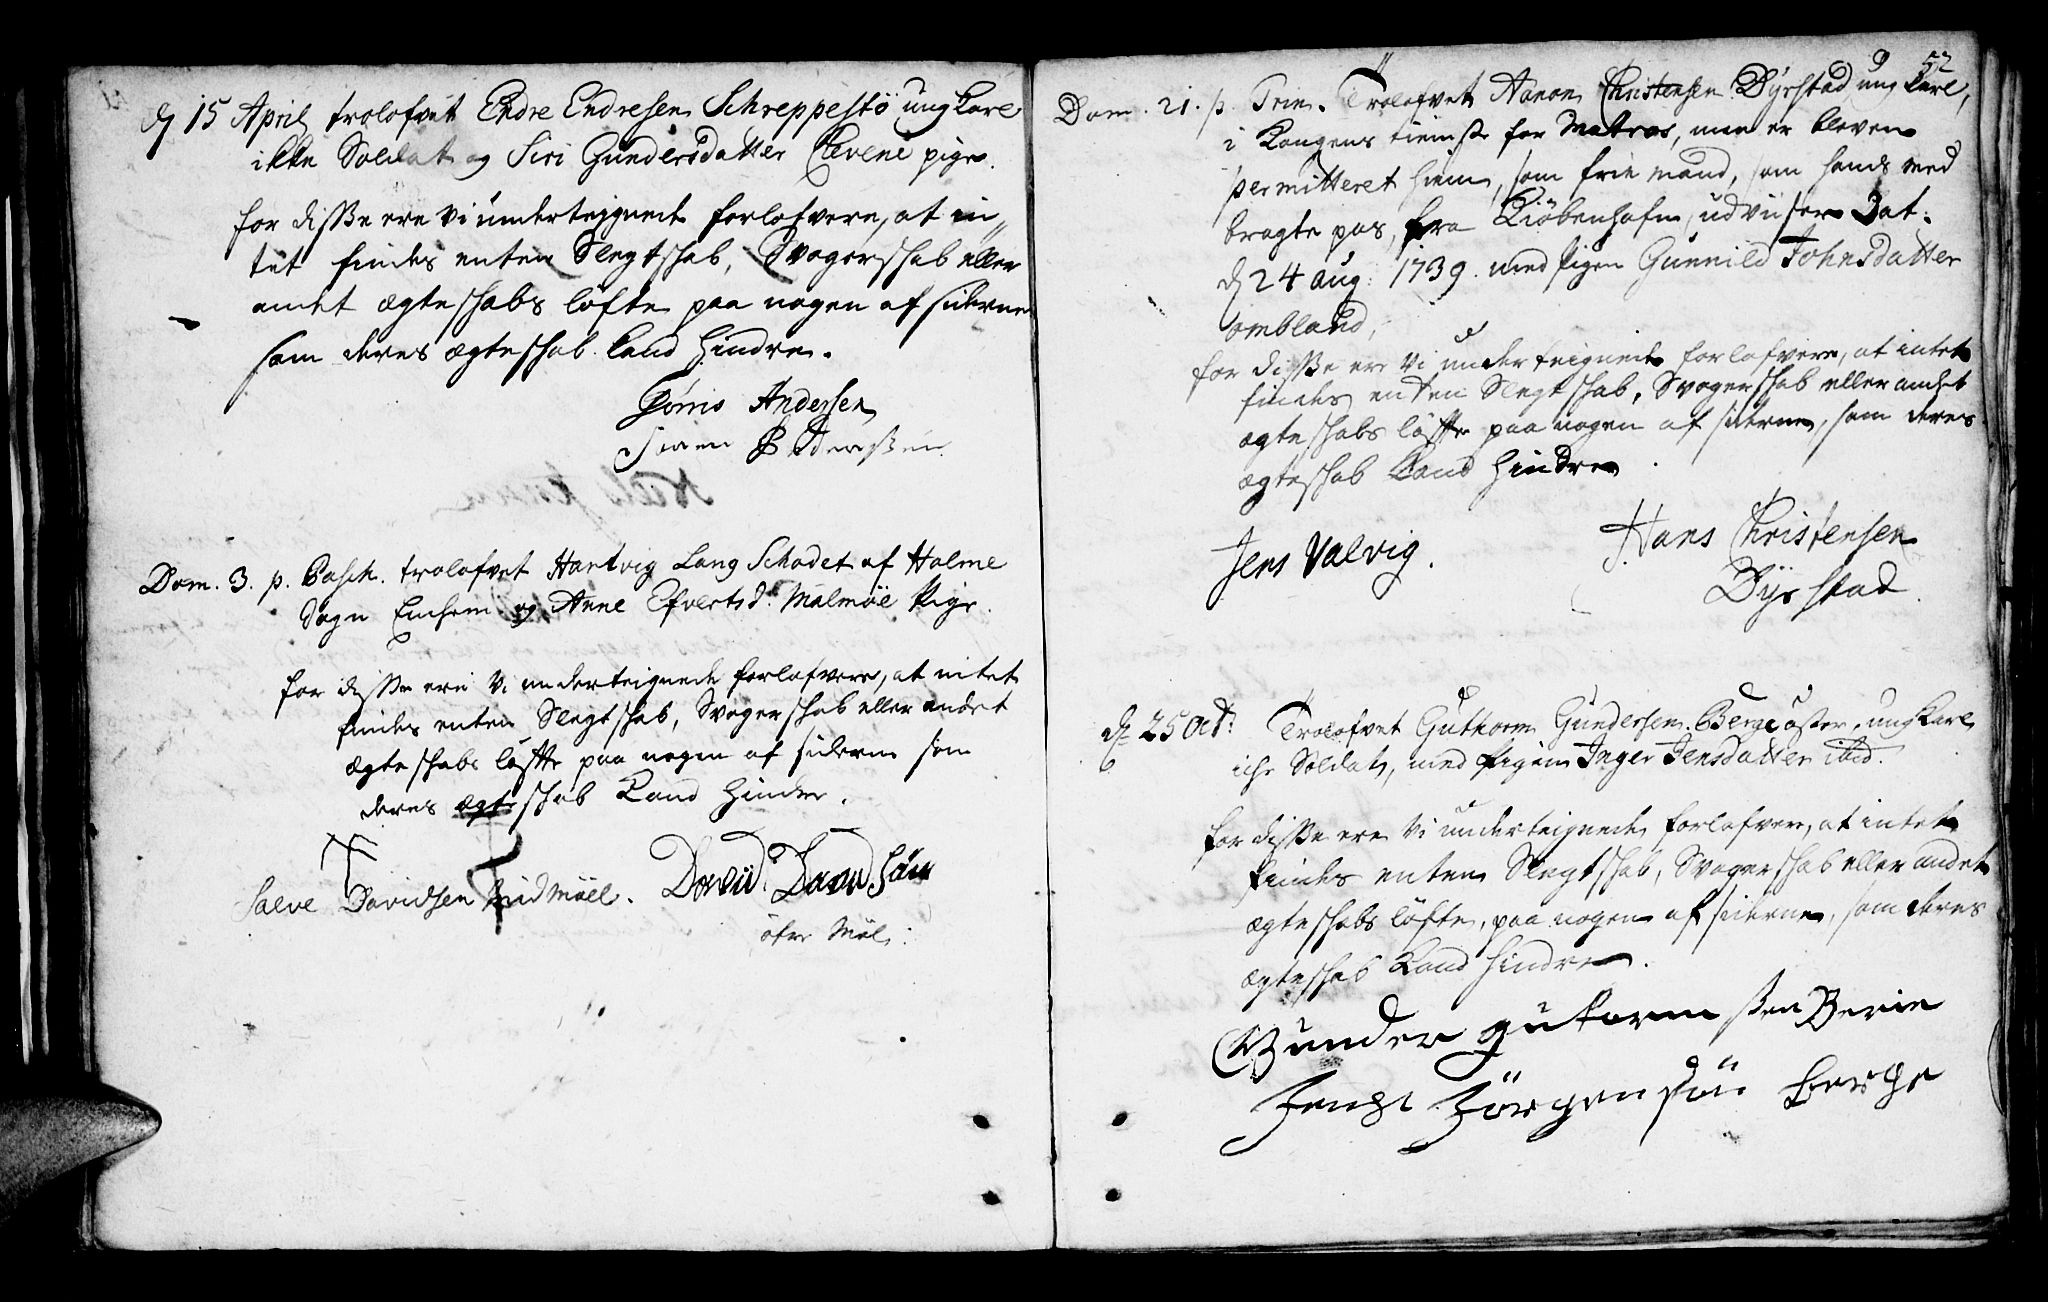 d 15 April trolofvet Endre Endresen Schreppestö ung karl
ikke Soldat og Siri Gundersdatter Clevene pige.
for disse ere vi undertegnede forlofvere, at in„
tet findes enten Slegtskab, Svogerskab eller
andet ægteskabs löfte paa nogen af siderne
som deres ægteskab kand hindre.
Törris Andersen
Dom. 3. p. Pasch. trolofvet Hartvig Lang Schadet af Holme
Sogn og Anne Efvertsd. Malmöe Pige.
for disse ere vi undertegnede forlofvere, at intet
findes enten Slegtskab, Svogerskab eller andet
ægteskabs löffte paa nogen af siderne som
deres ægteskab kand hindre.
Salve Davidsen indmöll. David David sön
öfre Möl:
9 52
Dom. 21. p. Trin. Trolofvet Aanon Christensen Dÿrstad ung karl,
i Kongens tieniste for Matros, men er bleven
permitteret hiem, som frie mand, som hands med
bragte pas, fra Kiöbenhafn, udviiser Dat.
d 24 aug: 1739. med Pigen Gunnild Johnsdatter
ombland,
for disse ere vi undertegnede forlofvere, at intet
findes enten Slegtskab, Svogerskab eller andet
ægteskabs löffte paa nogen af siderne, som deres
ægteskab kand hindre.
Jens Valvig. Hans Christensen
Dÿrstad
d 25 Oct: Trolofvet Guthorm Gundersen Berge öster, ung karl
icke Soldat, med Pigen Inger Jensdatter ibid.
for disse ere vi undertegnede forlofvere, at intet
findes enten Slegtskab, Svogerskab eller andet
ægteskabs löfte, paa nogen af siderne, som deres
ægteskab kand hindre.
Gunder gutorm ssen Berie
Jens Jörgensön Berge